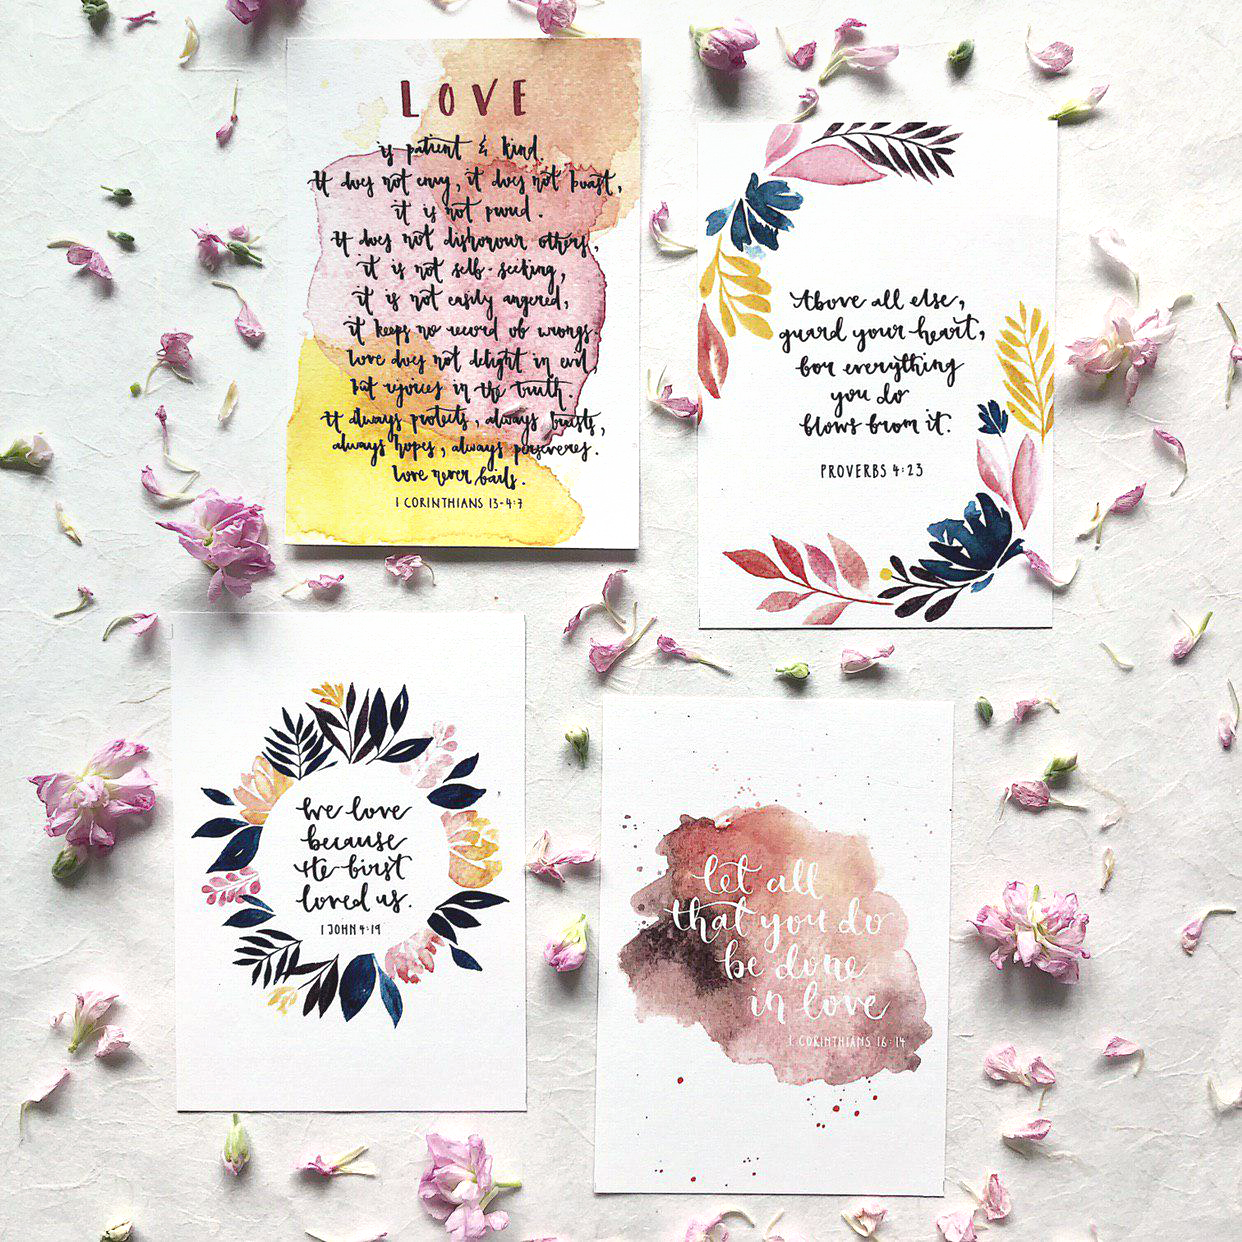 LOVE
is patient & kind.
It does not envy, it does not boast,
it is not proud.
It does not dishonour others,
it is not self-seeking,
it is not easily angered,
it keeps no record of wrongs.
Love does not delight in evil,
but rejoices in the truth.
It always protects, always trusts,
always hopes, always perseveres.
Love never fails.
1 CORINTHIANS 13-4:7
Above all else,
guard your heart,
for everything
you do
flows from it.
PROVERBS 4:23
We love
because
He first
loved us.
1 JOHN 4:19
let all
that you do
be done
in love
1 CORINTHIANS 16:14